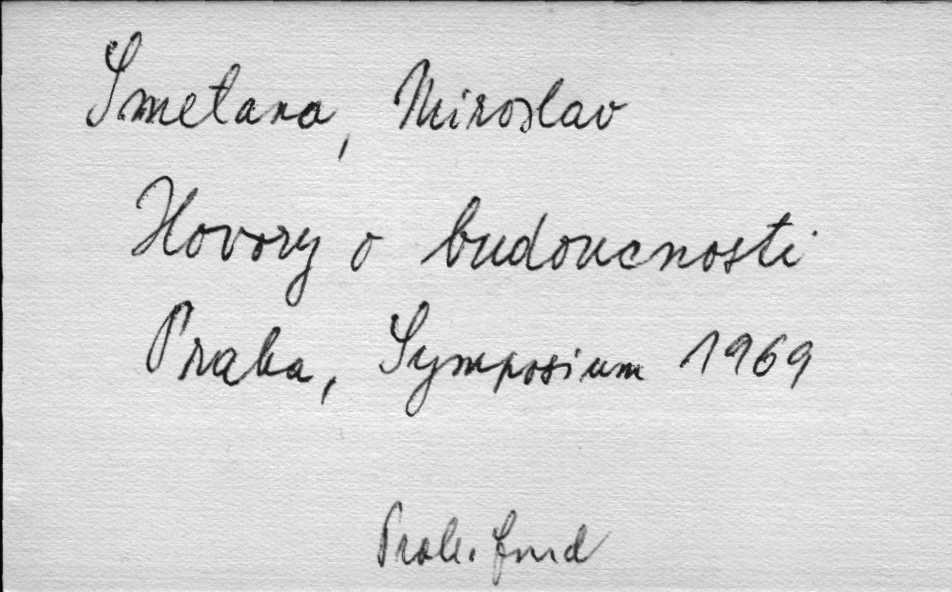 Smetana, Miroslav
Hovory o budoucnosti
Praha, Symposium 1969
fond